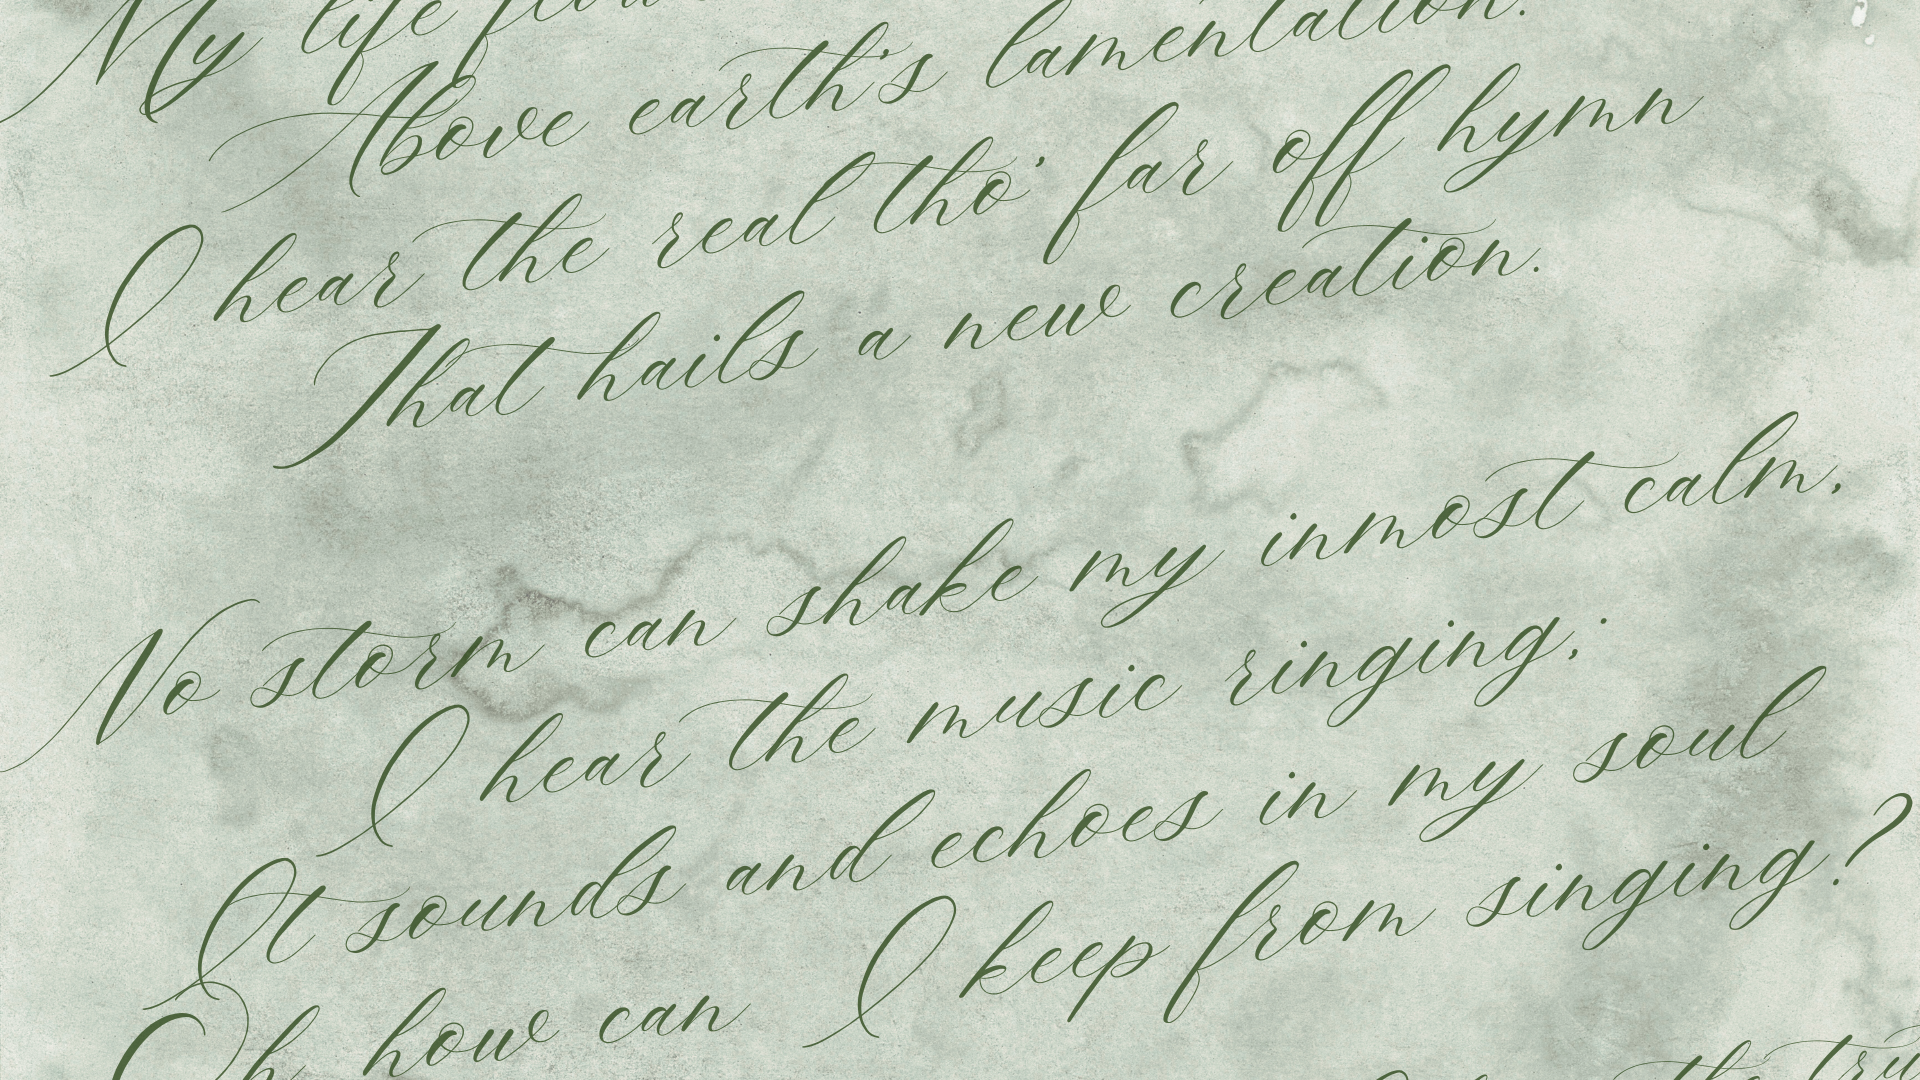 My life flows
Above earth's lamentation.
I hear the real tho' far off hymn
That hails a new creation.
No storm can shake my inmost calm,
I hear the music ringing;
It sounds and echoes in my soul
Oh how can I keep from singing?
the tru